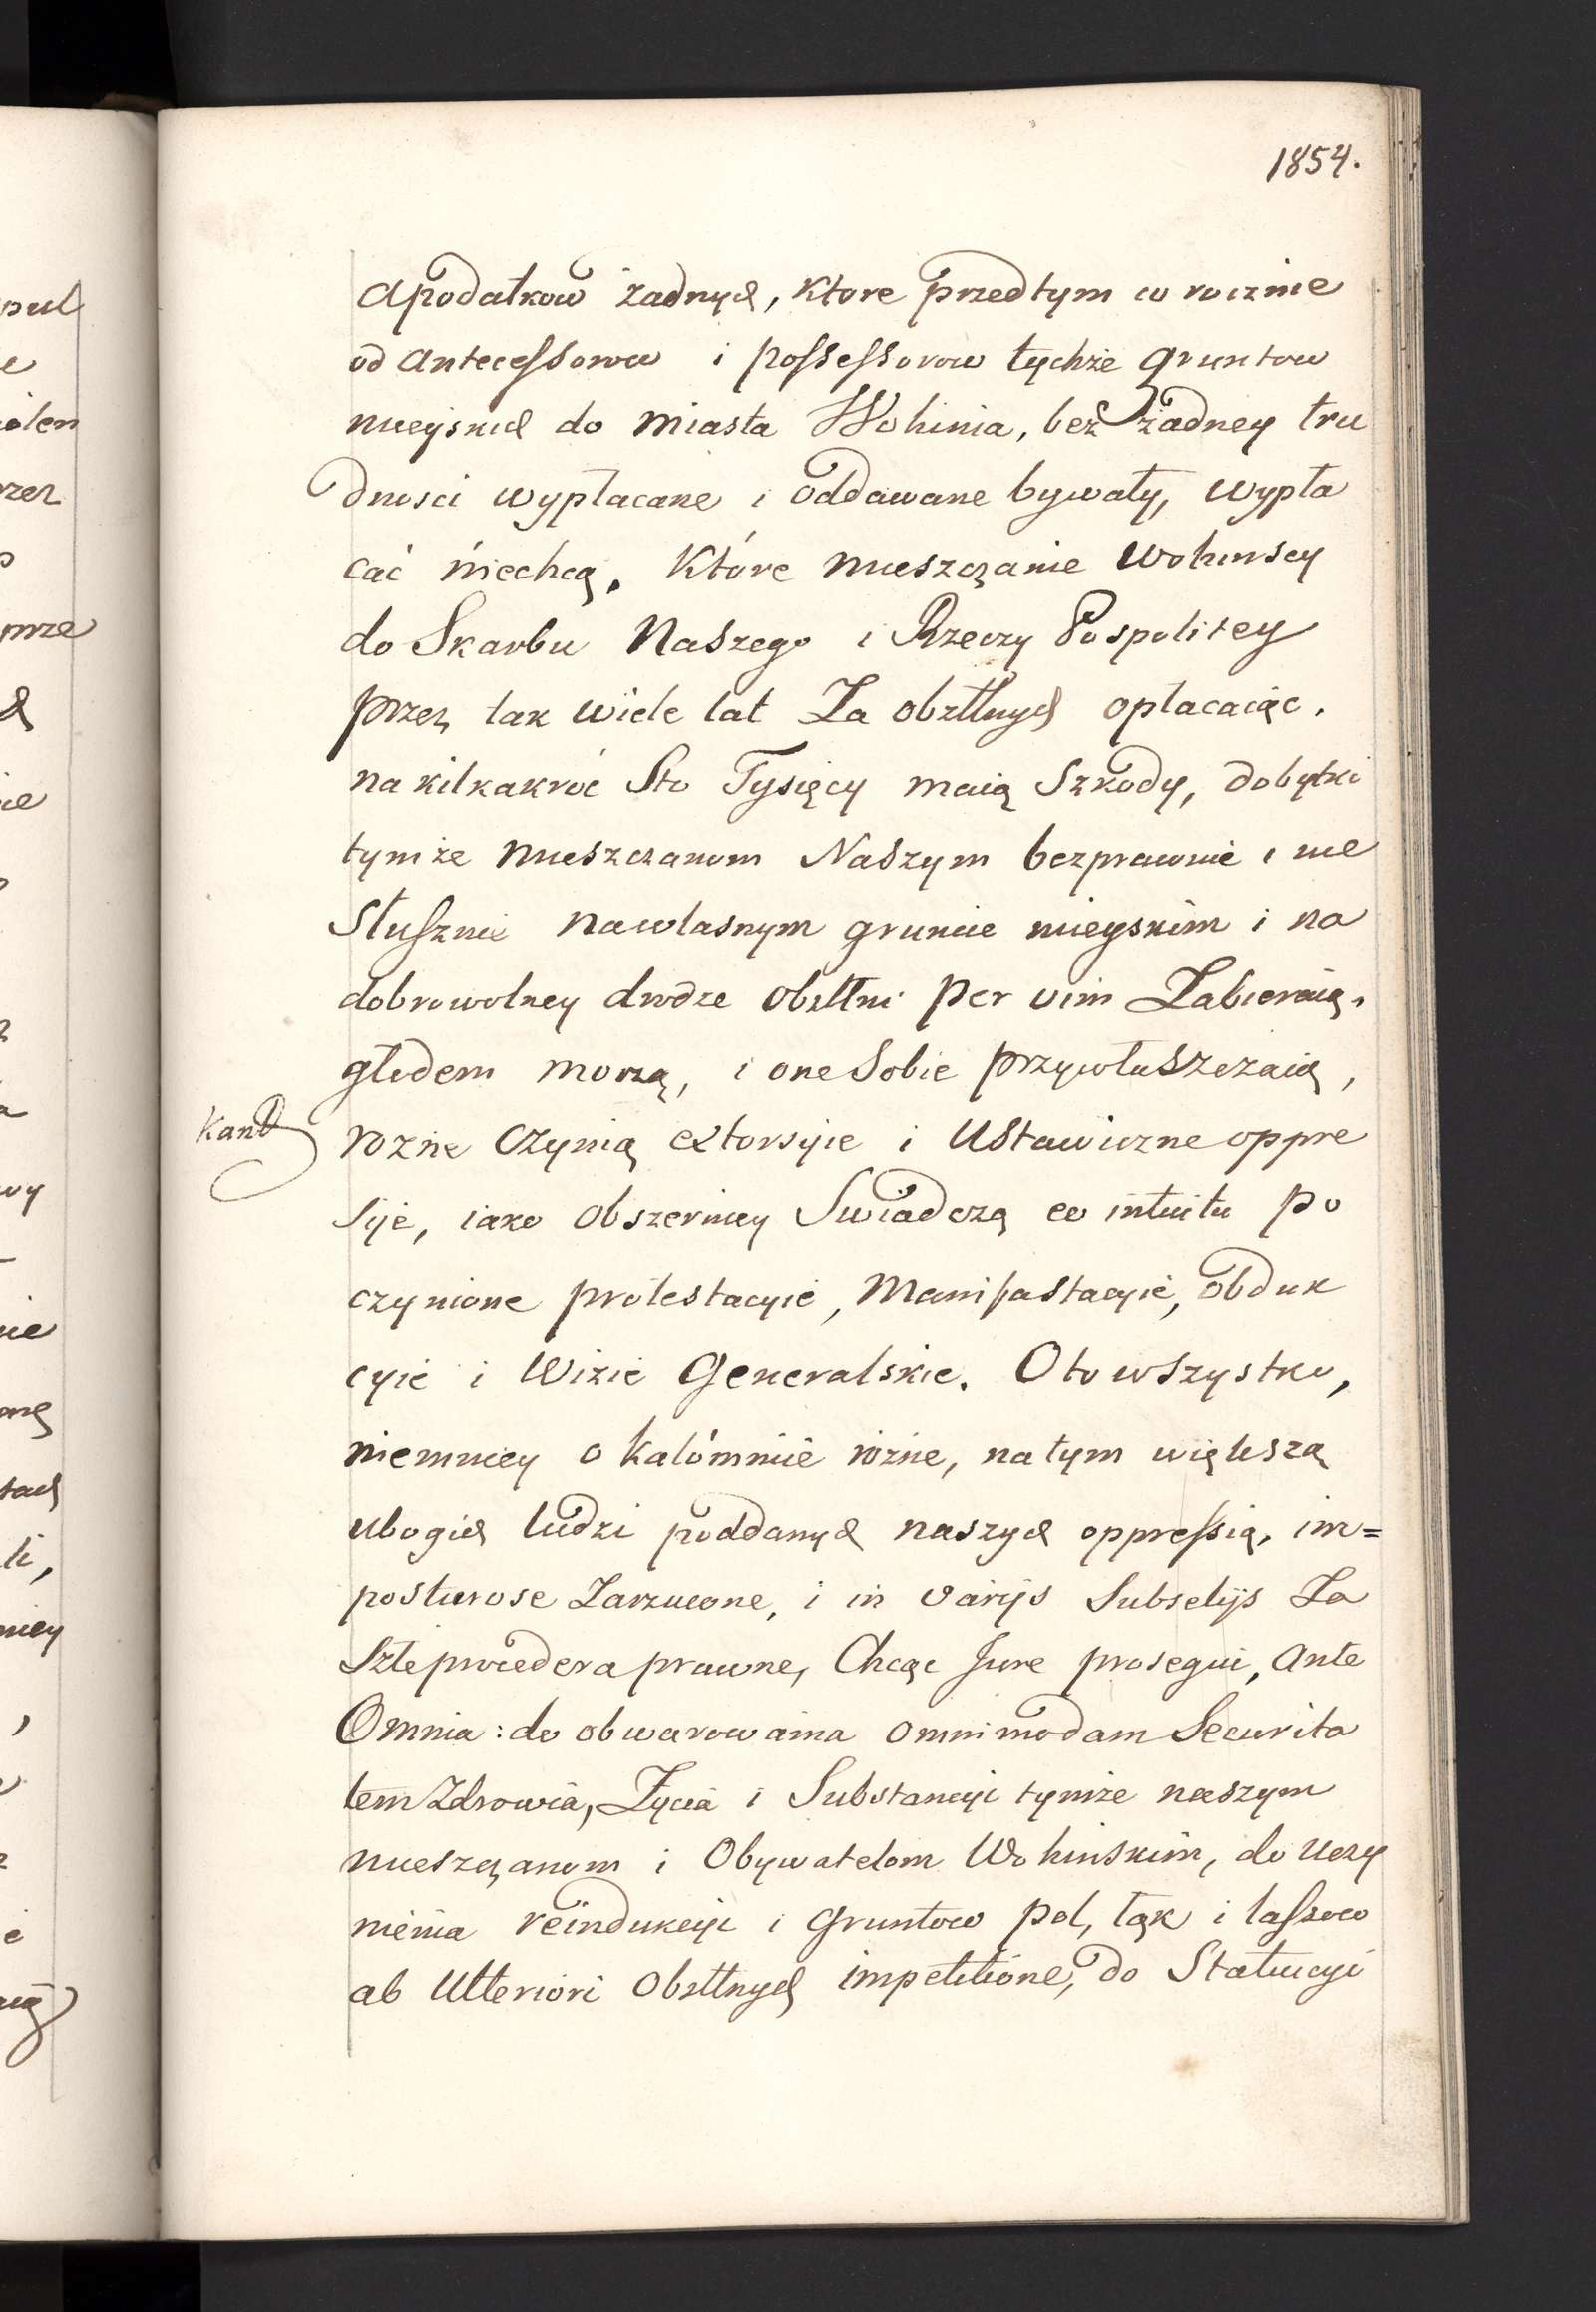 1854.
a podatkow żadnych, ktore przedtym co rocznie
od antecessorow i possessorow tychże gruntow
mieyskich do miasta Wohinia, bez żadney tru
dnosci wypłacane i oddawane bywały, wypła
cać niechcą. Które mieszczanie Wohinscy
do Skarbu Naszego i Rzeczy Pospolitey
przez tak wiele lat Za obżłłnych opłacaiąc,
na kilkakroć Sto Tysięcy maią Szkody, dobytki
tymże mieszczanom Naszym bezprawnie i nie
Słusznie nawłasnym gruncie mieyskim i na
dobrowolney drodze obżłłni per vim Zabieraią,
głodem morzą, i one Sobie przywłaszczaią,
rozne czynią extorsyie i Ustawiczne oppre
syie, iako obszerniey Swiadczą eo intuitu po
czynione protestacyie, Manifastacyie, obduk
cyie i Wizie Generalskie. Oto wszystko,
niemniey o kalómnie rózne, natym większą
ubogich ludzi poddanych naszych oppressią, im=
posturose Zarzucone, i in varijs Subselijs Za
Szłe procedera prawne, Chcąc Jure prosequi, ante
Omnia: do obwarowania omnimodam Securita
tem Zdrowia, Życia i Substancyi tymże naszym
mieszczanom i Obywatelom Wohinskim, do uczy
nienia reindukcyi i Gruntow pol, łąk i lassow
ab Ulteriori Obżłłnych impetitione, do Statucyi
pul
e
olen
rzez
prze
ch
ie
wy
nie
tach
li,
niey